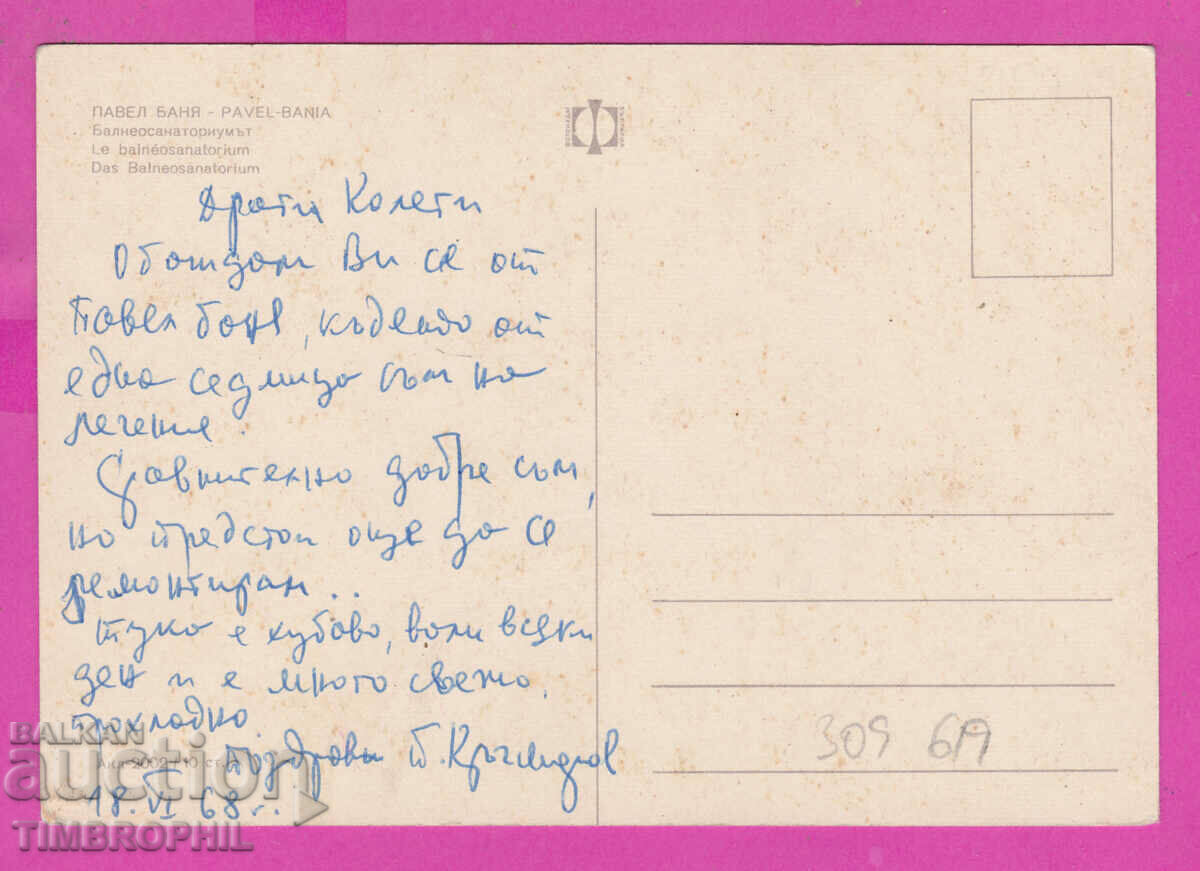 ПАВЕЛ БАНЯ - PAVEL-BANIA
Балнеосанаториумът
Le balnéosanatorium
Das Balneosanatorium
Драги Колеги
Обаждам Ви се от
Павел баня, където от
една седмица съм на
лечение.
Сравнително добре съм,
но предстои още да се
ремонтирам..
Тука е хубаво, вали всеки
ден и е много свежо,
прохладно.
Акл-2002 10 ст.
Поздрави
18.VI 68 г.
309 619
BALKAN
auction
TIMBROPHIL